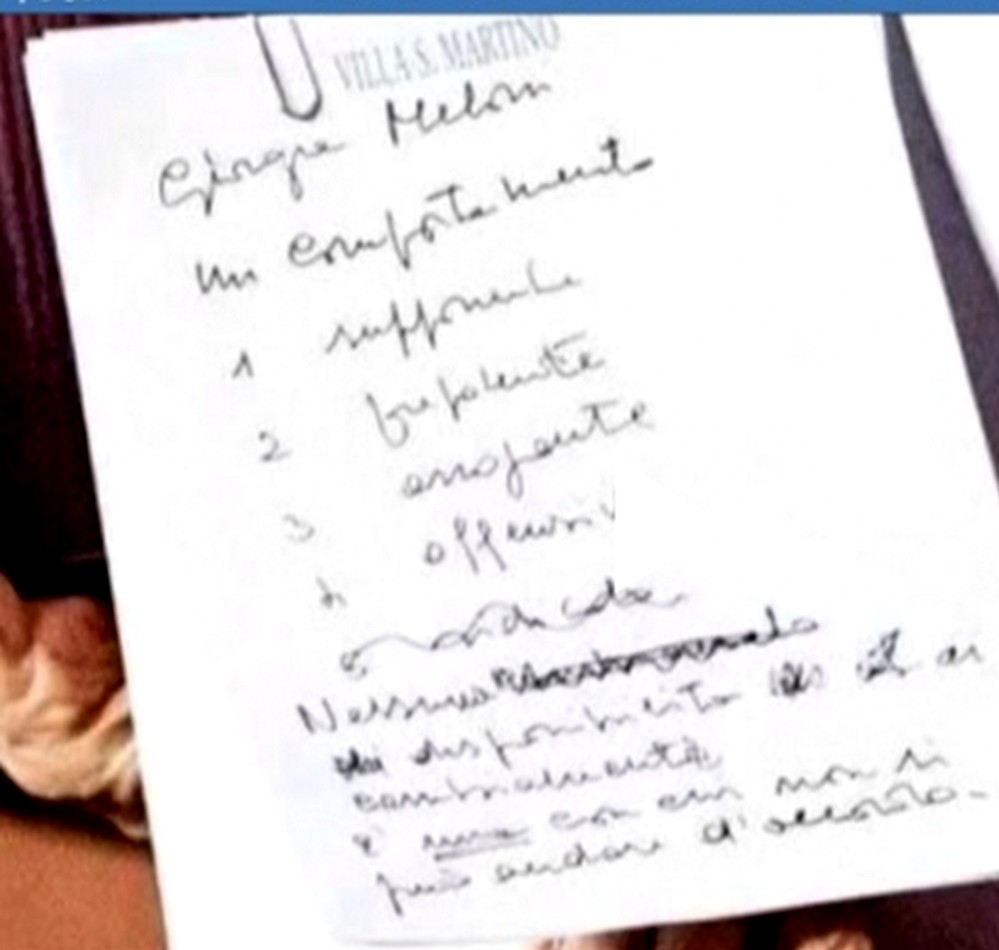 VILLA S. MARTINO
Giorgia Meloni
un comportamento
1 supponente
2 prepotente
3 arrogante
4 offensivo
Nessuna
di disponibilità ai
cambiamenti
è una con cui non si
può andare d'accordo.